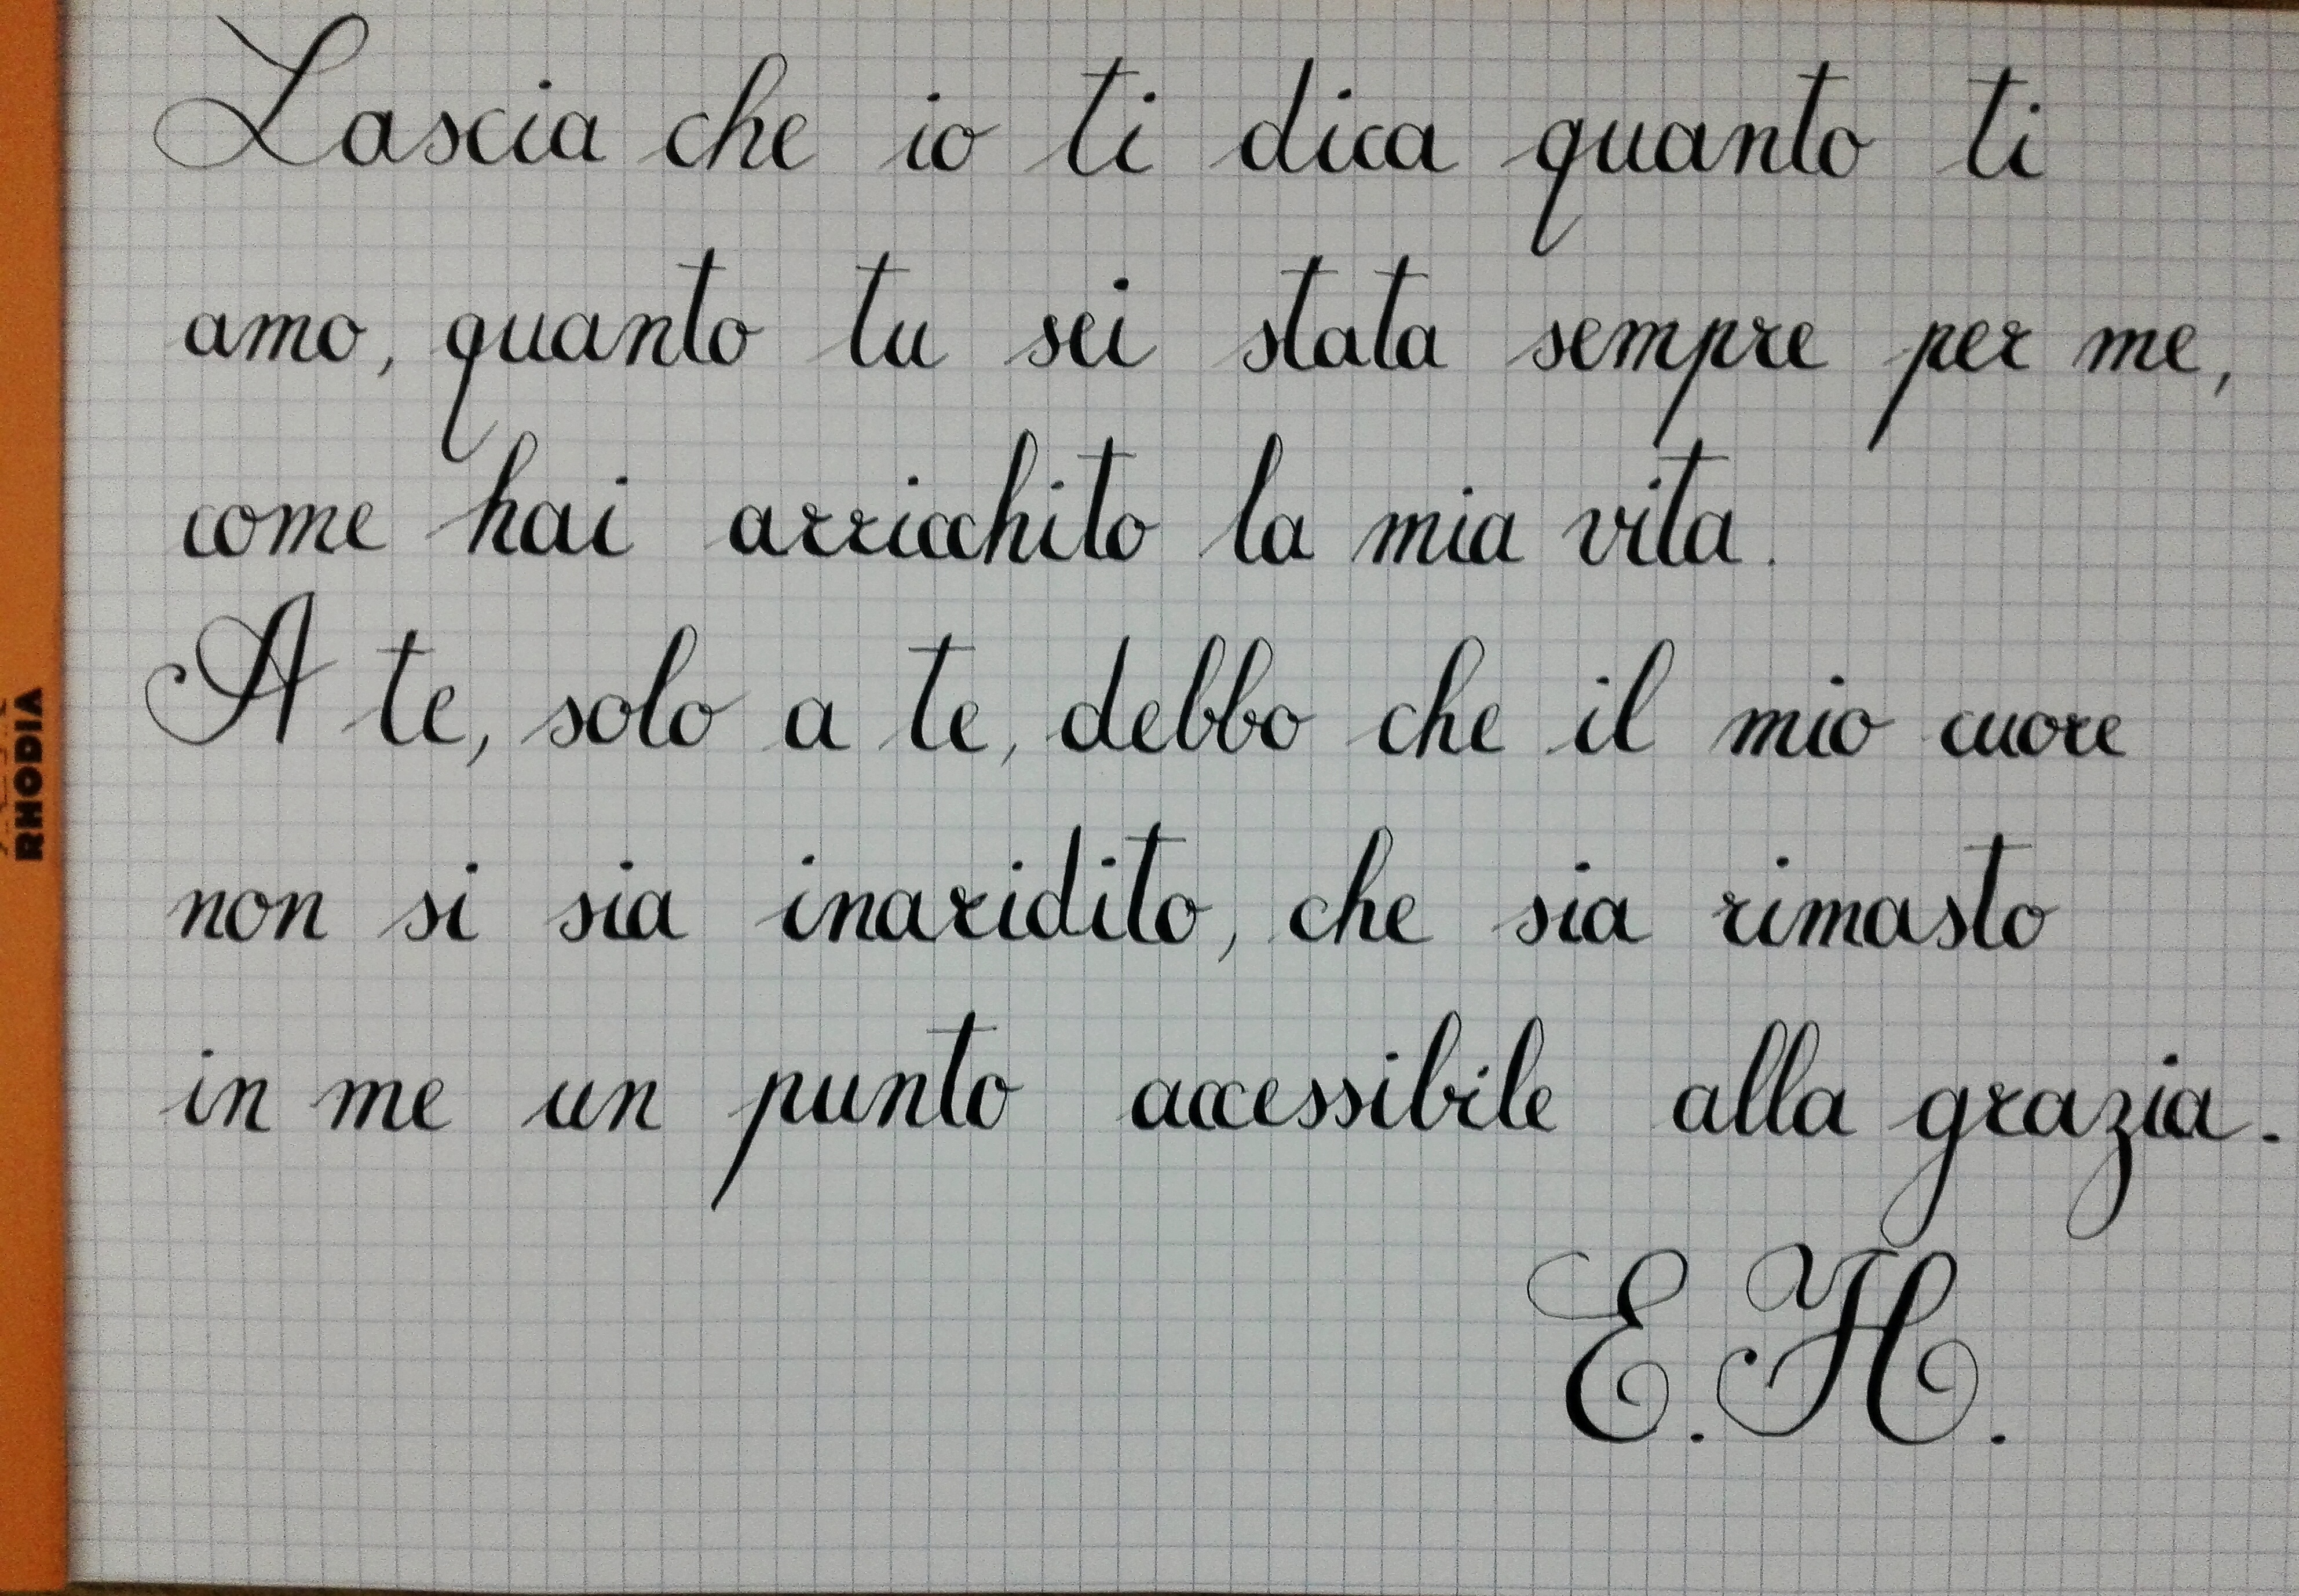 Lascia che io ti dica quanto ti
amo, quanto tu sei stata sempre per me,
come hai arricchito la mia vita.
A te, solo a te, debbo che il mio cuore
non si sia inaridito, che sia rimasto
in me un punto accessibile alla grazia.
E.H.
RHODIA